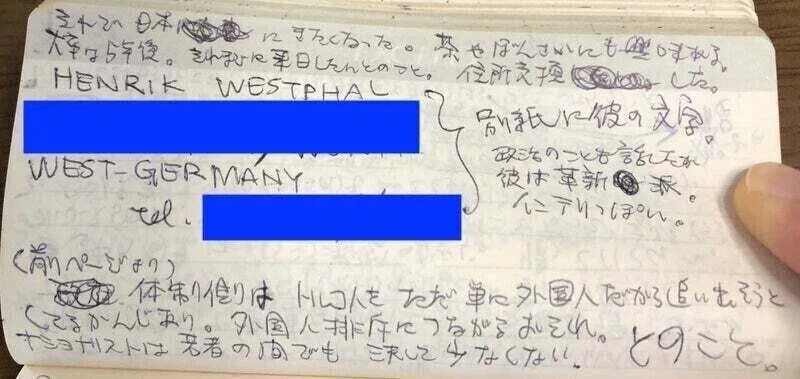 それで日本にきたくなった。茶やぼんさいにも
大学は5年後。それまでに来日したんとのこと。住所交換した。
HENRIK WESTPHAL
別紙に彼の文字。
WEST-GERMANY
tel.
政治のことも話したが
彼は革新派。
インテリっぽい。
(前ページより)
体制側は トルコ人を ただ単に外国人だから追い出そうと
してるかんじあり。外国人排斥につながるおそれ。
ナショナリストは若者の間でも 決して少なくない。とのこと。